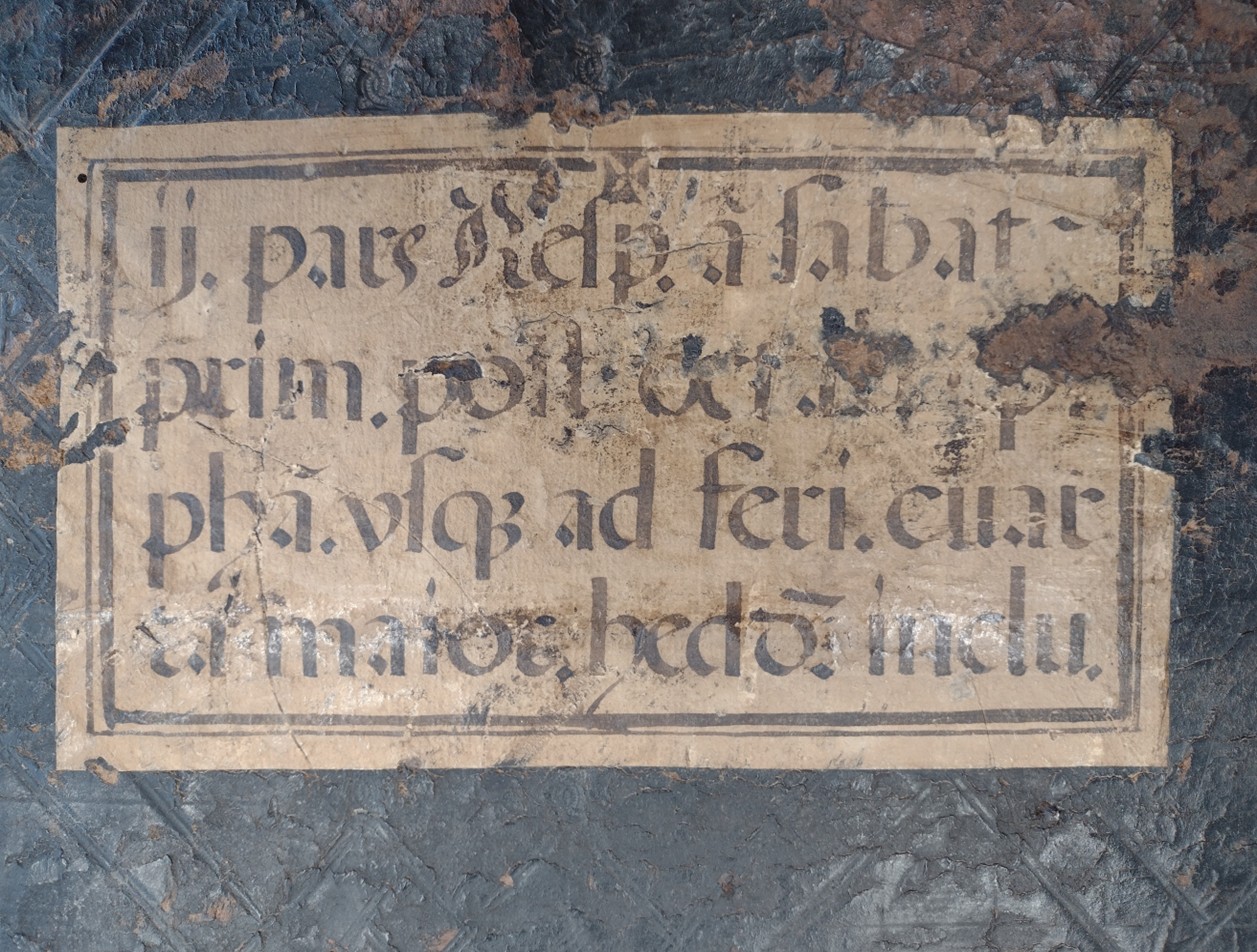 ij. pars Resp. a sabat
prim. post oct.
phā. vsqꝫ ad feri. quar
tā maior. hedō. inclu.